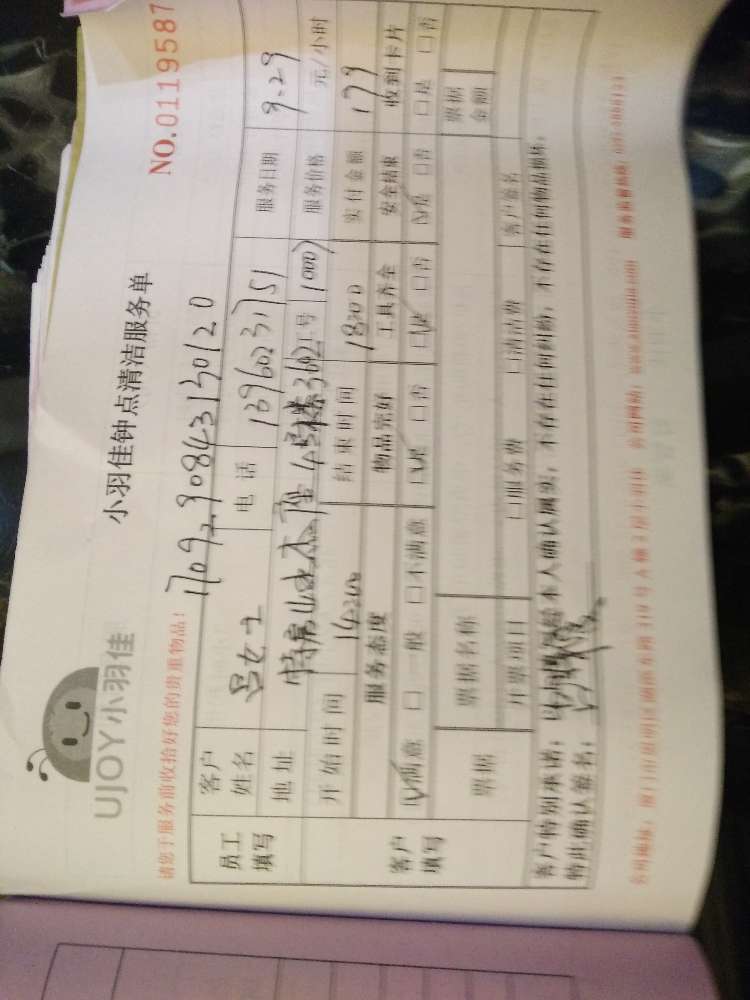 UJOY小羽佳
小羽佳钟点清洁服务单
NO.0119587
请您于服务前收拾好您的贵重物品!
1709290843130120
员工填写
客户姓名 吕女士 电话 13960231751 服务日期 9.29
地址 特房山水 座4号楼3602 工号 1000 服务价格 元/小时
开始时间 14:200 结束时间 18:00 实付金额 179
客户填写
服务态度 物品完好 工具齐全 安全结束 收到卡片
☑满意 □一般 □不满意 ☑是 □否 ☑是 □否 ☑是 □否 □是 □否
票据 票据名称 票据金额
开票项目 □服务费 □清洁费 客户签名
客户特别承诺: 本人确认属实, 不存在任何纠纷, 不存在任何物品损坏,
特此确认签名: